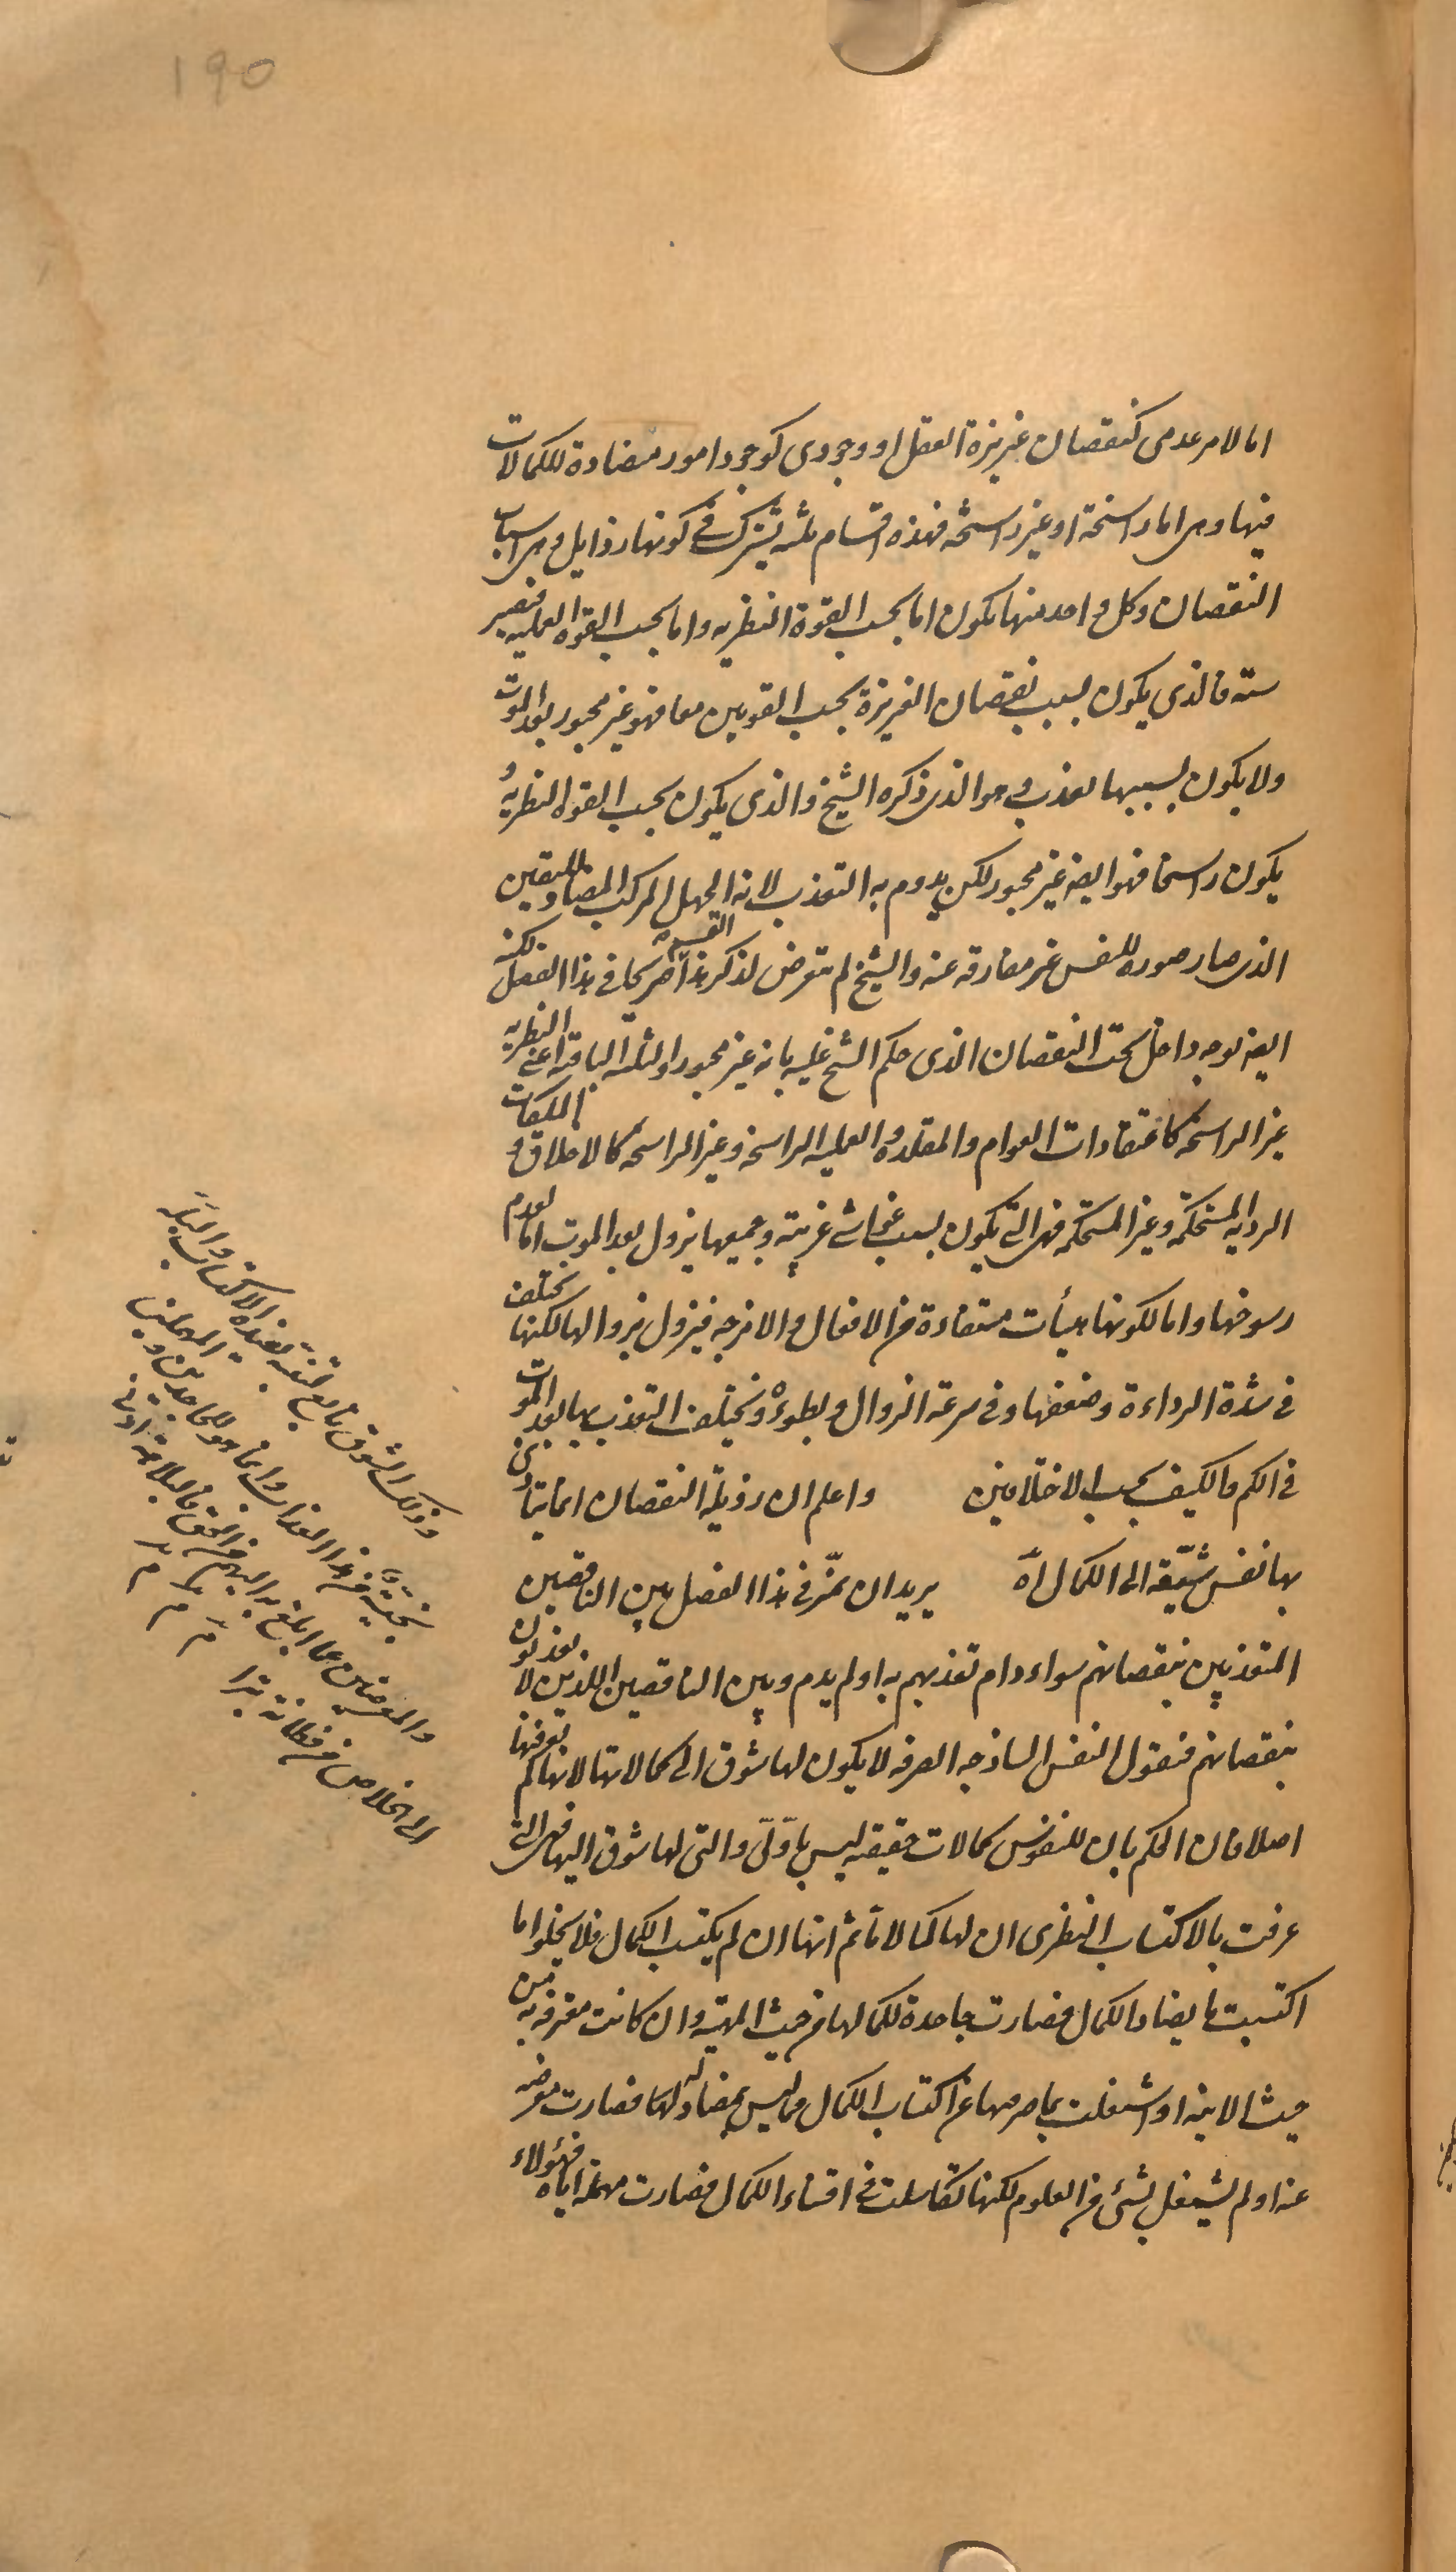 ١٩٥
اما لامر عدمى كنقصان غريزة العقل او وجودى كوجود امور مضادة للكمالات
فيها وهى اما راسخة او غير راسخة فهذه اقسام ثلثه تشترك فى كونها رذايل وهى اسباب
النقصان وكل واحد منها يكون اما بحسب القوة النظريه واما بحسب القوه العمليه فتصير
سته فالذى يكون بسبب نقصان الغريزة بحسب القوتين معا فهو غير مجبور بعد الموت
ولا يكون بسببها تعذب وهو الذى ذكره الشيخ والذى يكون بحسب القوه النظريه و
يكون راسخا فهو ايضا غير مجبور لكن يدوم به التعذب لانه الجهل المركب المضاد لليقين
الذى صار صورة للنفس غير مفارقه عنه والشيخ لم يتعرض لذكر هذا القسم صريحا فى هذا الفصل لكنه
ايضا بوجه داخل تحت النقصان الذى حكم الشيخ عليه بانه غير مجبور والثلثه الباقيه اعنى النظريه
غير الراسخه كاعتقادات العوام والمقلده والعمليه الراسخه وغير الراسخه كالاخلاق و الملكات
الرديه المستحكمة وغير المستحكمه فهى التى يكون بسبب غواش غريبة وجميعها يزول بعد الموت اما لعدم
رسوخها واما لكونها هيأت مستفادة من الافعال والامزجه فيزول بزوالها لكنها تختلف
فى شدة الرداءة وضعفها وفى سرعة الزوال وبطوءه ويختلف التعذب بها بعد الموت
فى الكم والكيف بحسب الاختلافين واعلم ان رذيلة النقصان انما يتاذى
بها نفس شيّقه الى الكمال آه يريد ان يميّز فى هذا الفصل بين الناقصين
المتعذبين بنقصانهم سواء دام تعذبهم به او لم يدم وبين الناقصين اللذين لا يعذبون
بنقصانهم فنقول النفس الساذجه الصرفه لا يكون لها شوق الى كمالاتها لانها لم تعرفها
اصلا فان الحكم بان للنفوس كمالات حقيقيه ليس باوّلى والتى لها شوق اليها فهى التى
عرفت بالاكتساب النظرى ان لها كمالا ما ثم انها ان لم يكتسب الكمال فلا يخلو اما
اكتسبت ما يضاد الكمال فصارت جاحدة لكمالها من حيث المهية وان كانت معترفه به من
حيث الانيه او اشتغلت بما صرفها عن اكتساب الكمال مما ليس بمضاد له فصارت معرضه
عنه او لم يشتغل بشئ من العلوم لكنها تكاسلت فى اقتناء الكمال فصارت مهملة اياه فهؤلاء
وذلك الشوق تابع لتنبّه يفيده الاكتساب والبُله
بجنبة من هذا العذاب وانما هو للجاحدين و المهملين
والمعرضين عما المع به اليهم من الحق فالبلاهة ادنى
الى الخلاص من فطانة بترا
م م م